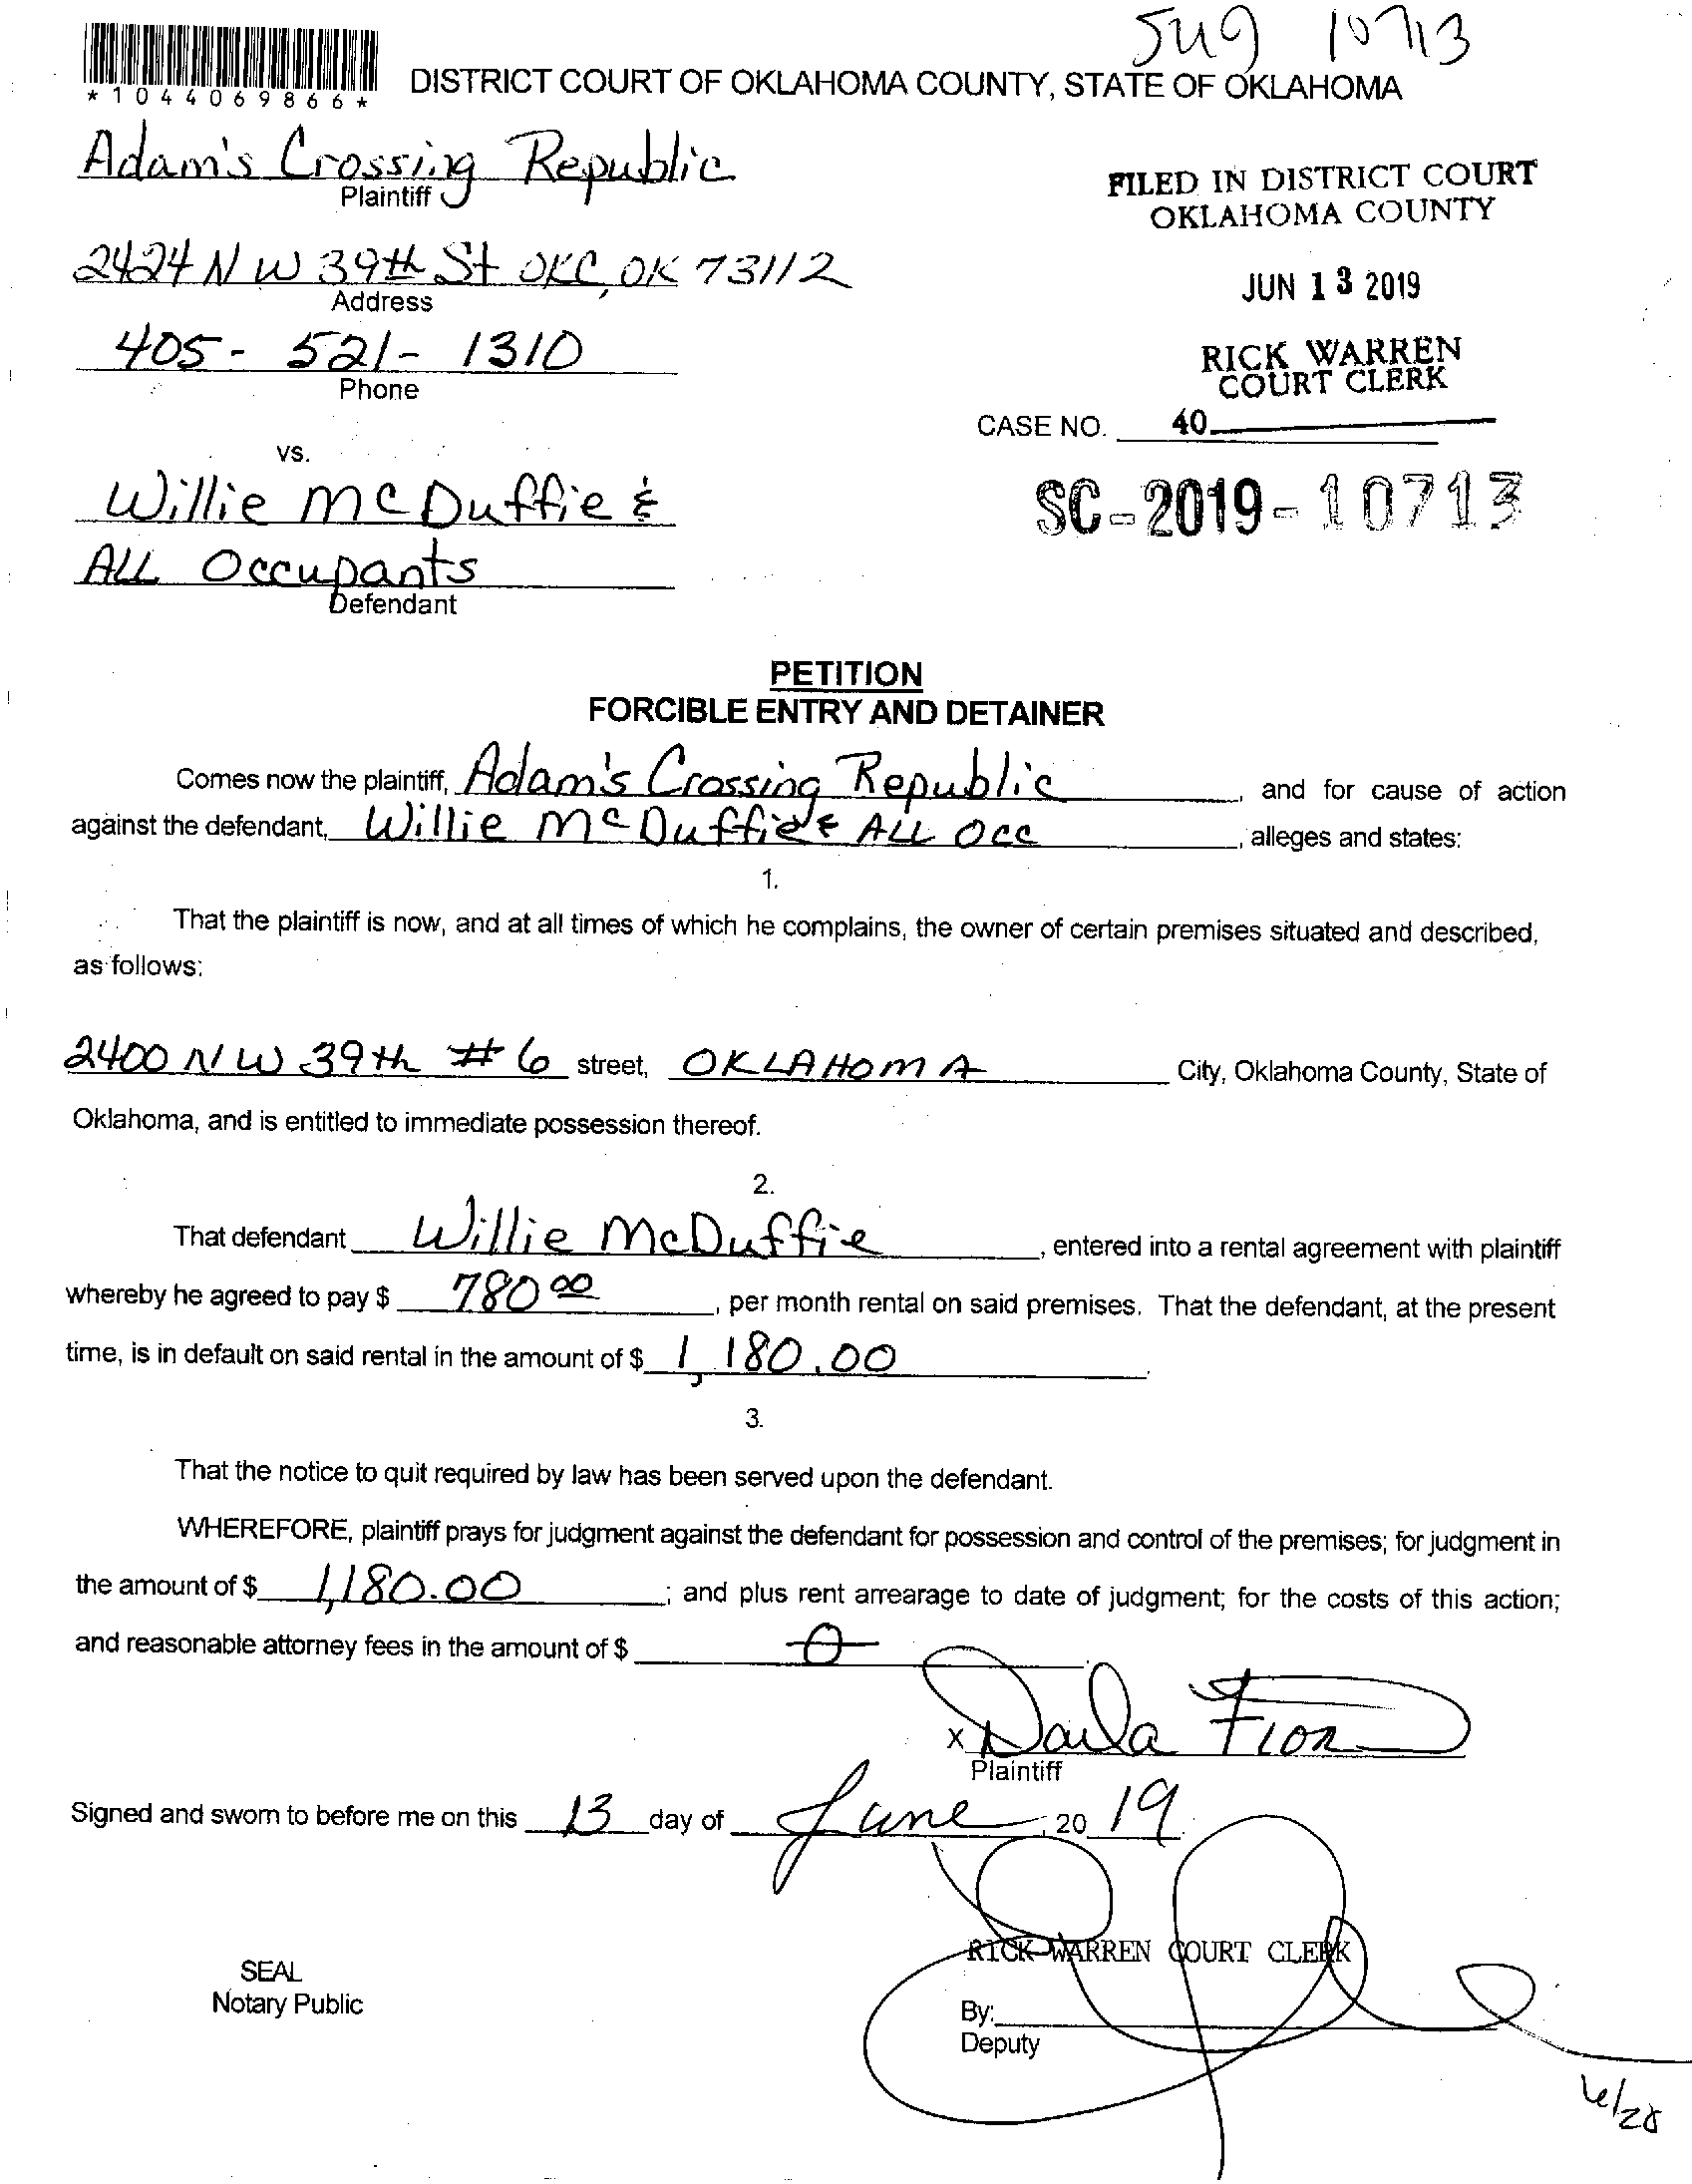 10713
*1044069866*
DISTRICT COURT OF OKLAHOMA COUNTY, STATE OF OKLAHOMA
Adam's Crossing Republic
Plaintiff
FILED IN DISTRICT COURT
OKLAHOMA COUNTY
2424 NW 39th St OKC, OK 73112
Address
JUN 13 2019
405-521-1310
Phone
RICK WARREN
COURT CLERK
CASE NO. 40
vs.
Willie McDuffie &
SC-2019-10713
ALL Occupants
Defendant
PETITION
FORCIBLE ENTRY AND DETAINER
Comes now the plaintiff, Adam's Crossing Republic, and for cause of action
against the defendant, Willie McDuffie & ALL Occ, alleges and states:
1.
That the plaintiff is now, and at all times of which he complains, the owner of certain premises situated and described,
as follows:
2400 NW 39th #6 street, OKLAHOMA City, Oklahoma County, State of
Oklahoma, and is entitled to immediate possession thereof.
2.
That defendant Willie McDuffie, entered into a rental agreement with plaintiff
whereby he agreed to pay $ 780 00, per month rental on said premises. That the defendant, at the present
time, is in default on said rental in the amount of $ 1,180.00.
3.
That the notice to quit required by law has been served upon the defendant.
WHEREFORE, plaintiff prays for judgment against the defendant for possession and control of the premises; for judgment in
the amount of $ 1,180.00; and plus rent arrearage to date of judgment; for the costs of this action;
and reasonable attorney fees in the amount of $ 0
x Darla
Plaintiff
Signed and sworn to before me on this 13 day of June, 20 19.
RICK WARREN COURT CLERK
SEAL
Notary Public
By:
Deputy
6/28